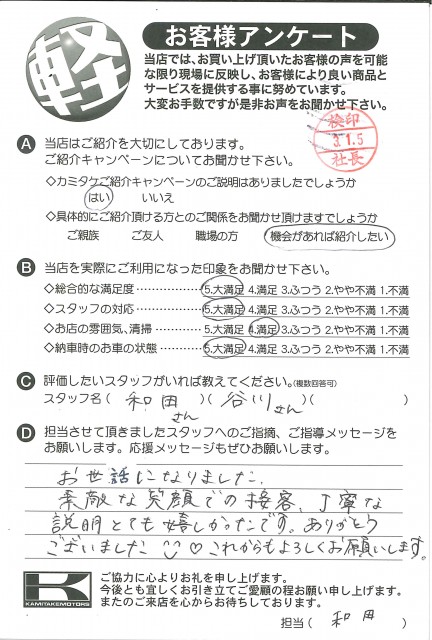 軽
お客様アンケート
当店では、お買い上げ頂いたお客様の声を可能
な限り現場に反映し、お客様により良い商品と
サービスを提供する事に努めています。
大変お手数ですが是非お声をお聞かせ下さい。
検印
3.1.5
社長
A 当店はご紹介を大切にしております。
ご紹介キャンペーンについてお聞かせ下さい。
◇カミタケご紹介キャンペーンのご説明はありましたでしょうか
はい いいえ
◇具体的にご紹介頂ける方とのご関係をお聞かせ頂けますでしょうか
ご親族 ご友人 職場の方 機会があれば紹介したい
B 当店を実際にご利用になった印象をお聞かせ下さい。
◇総合的な満足度……………5.大満足 4.満足 3.ふつう 2.やや不満 1.不満
◇スタッフの対応……………5.大満足 4.満足 3.ふつう 2.やや不満 1.不満
◇お店の雰囲気、清掃…………5.大満足 4.満足 3.ふつう 2.やや不満 1.不満
◇納車時のお車の状態…………5.大満足 4.満足 3.ふつう 2.やや不満 1.不満
C 評価したいスタッフがいれば教えてください。(複数回答可)
スタッフ名(和田さん)(谷川さん)( )
D 担当させて頂きましたスタッフへのご指摘、ご指導メッセージを
お願いします。応援メッセージもぜひお願いします。
お世話になりました。
素敵な笑顔での接客、丁寧な
説明とても嬉しかったです。ありがとう
ございました♡これからもよろしくお願いします。
K
KAMITAKEMOTORS
ご協力に心よりお礼を申し上げます。
今後とも宜しくお引き立てご愛顧の程お願い申し上げます。
またのご来店を心からお待ちしております。
担当(和田)